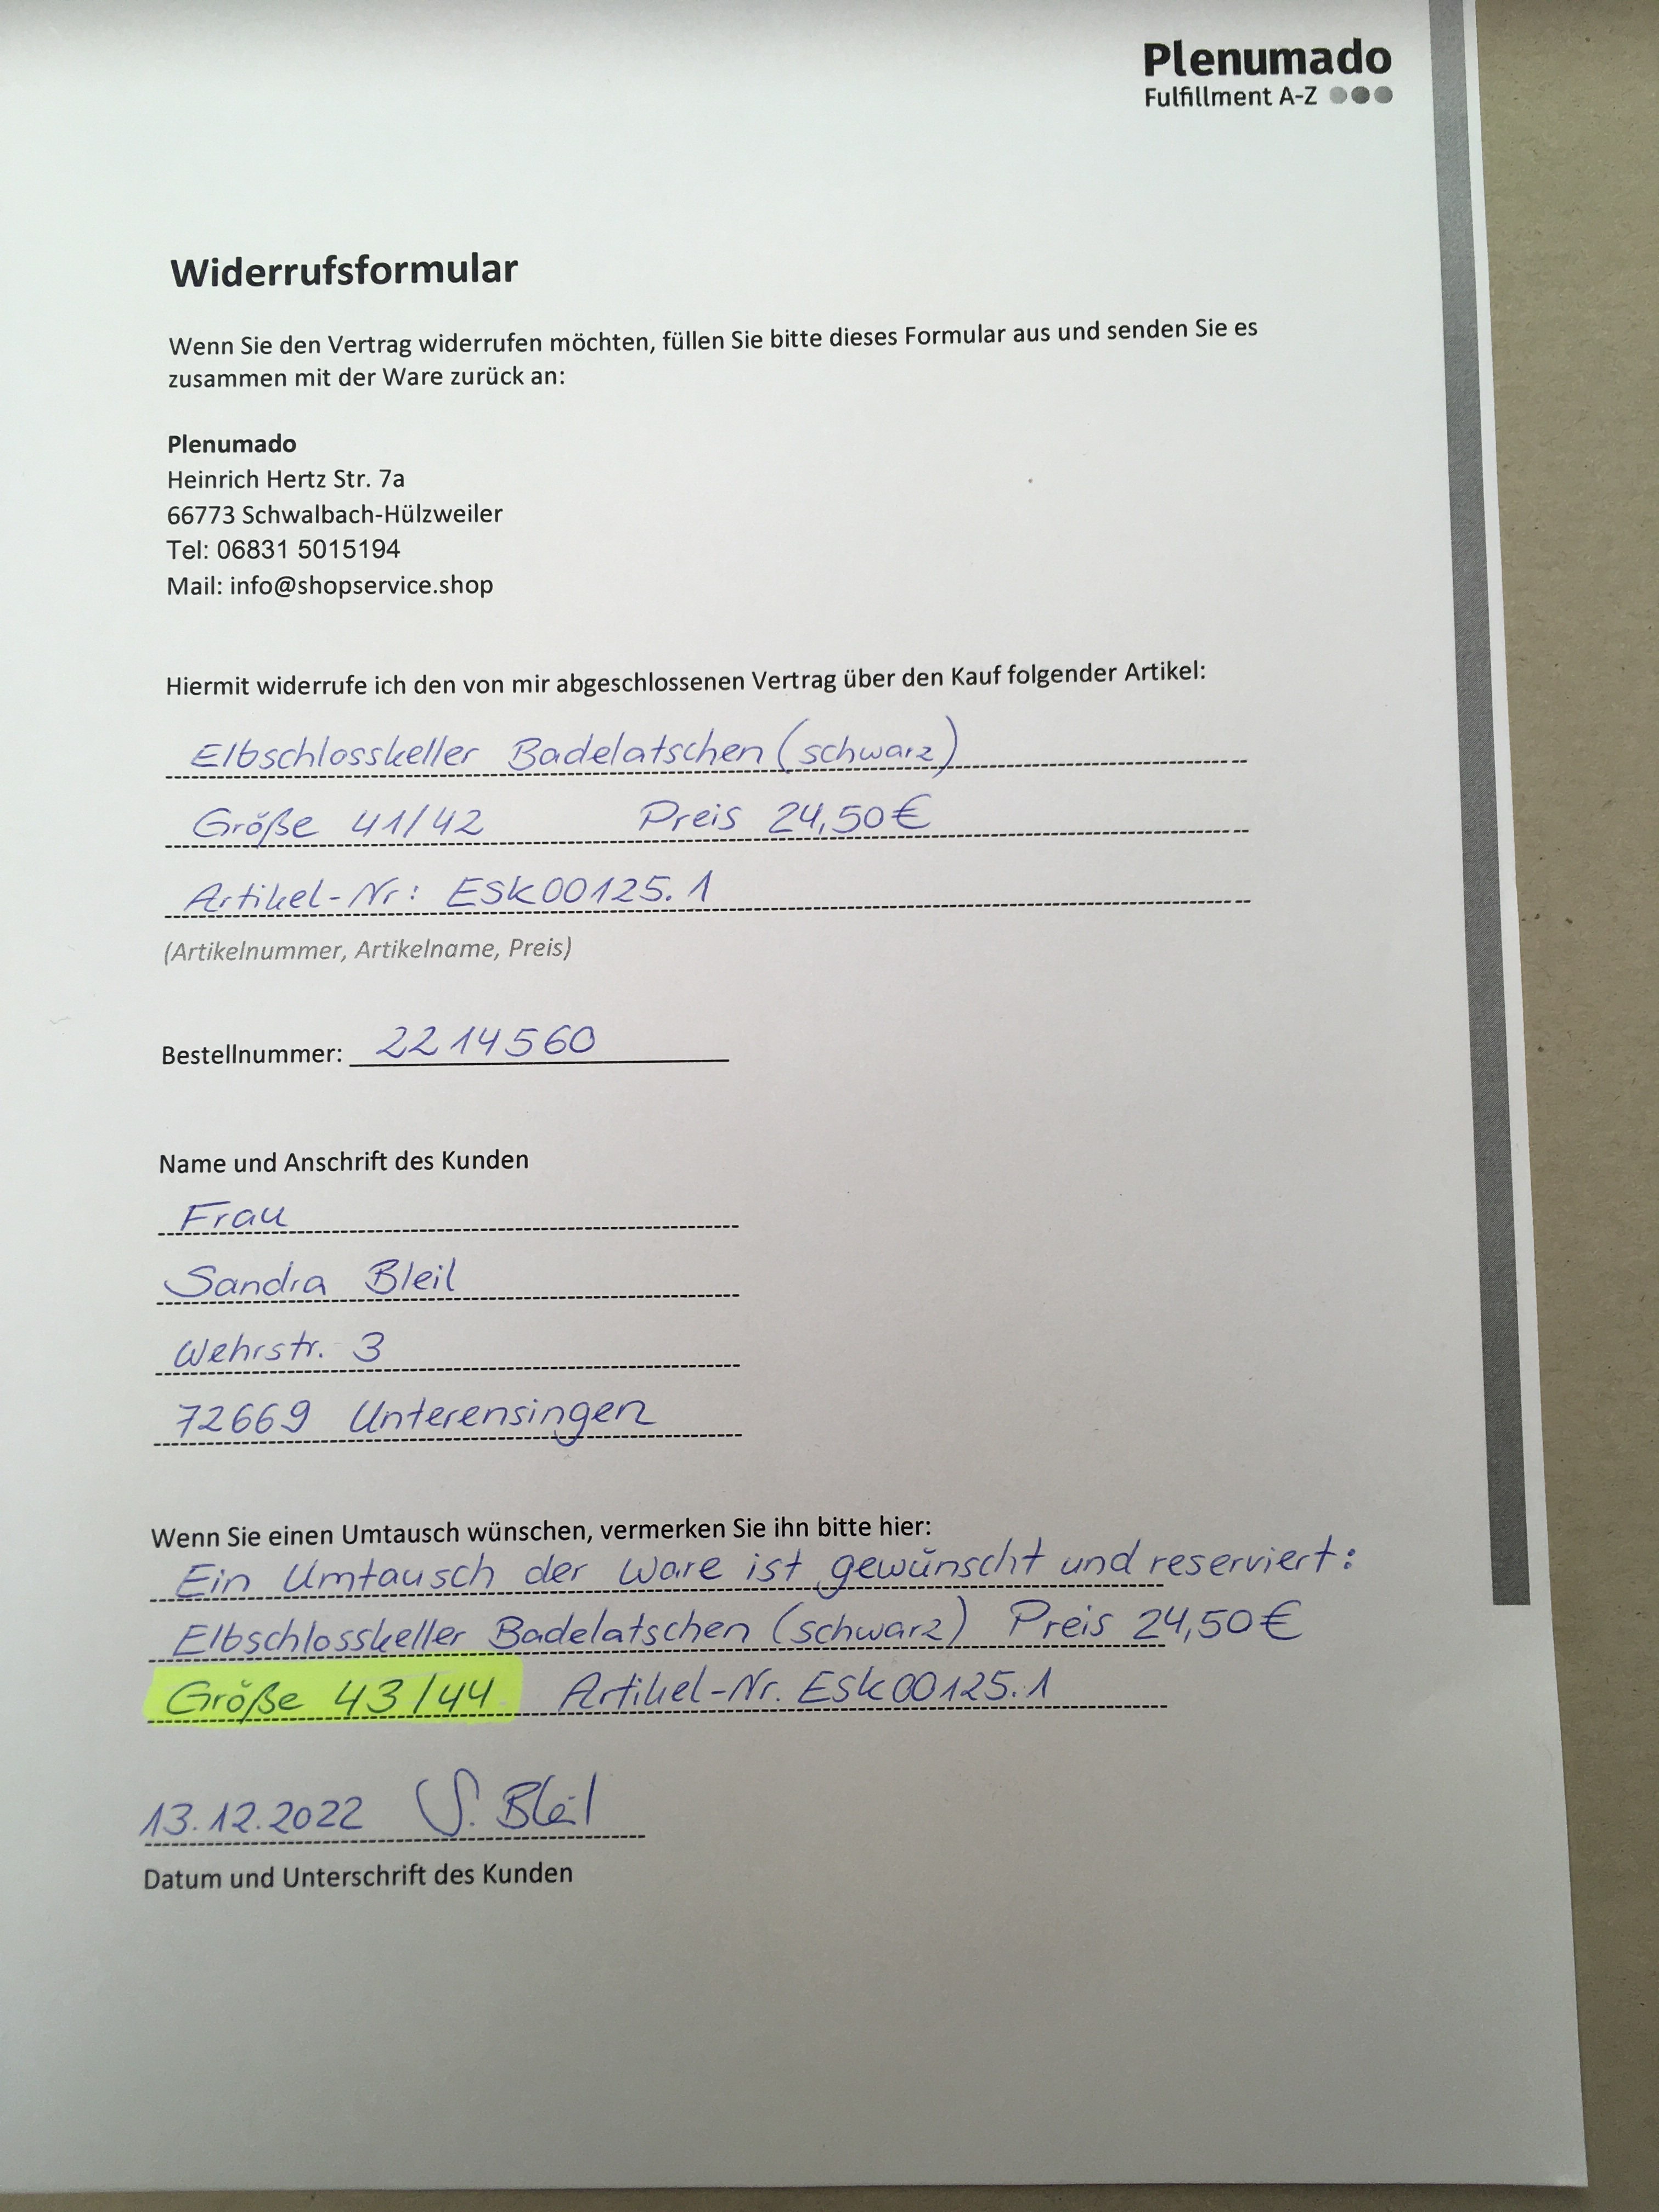 Plenumado
Fulfillment A-Z
Widerrufsformular
Wenn Sie den Vertrag widerrufen möchten, füllen Sie bitte dieses Formular aus und senden Sie es
zusammen mit der Ware zurück an:
Plenumado
Heinrich Hertz Str. 7a
66773 Schwalbach-Hülzweiler
Tel: 06831 5015194
Mail: info@shopservice.shop
Hiermit widerrufe ich den von mir abgeschlossenen Vertrag über den Kauf folgender Artikel:
Elbschlosskeller Badelatschen (schwarz)
Größe 41/42 Preis 24,50€
Artikel-Nr: ESK00125.1
(Artikelnummer, Artikelname, Preis)
Bestellnummer: 2214560
Name und Anschrift des Kunden
Frau
Sandra Bleil
Wehrstr. 3
72669 Unterensingen
Wenn Sie einen Umtausch wünschen, vermerken Sie ihn bitte hier:
Ein Umtausch der Ware ist gewünscht und reserviert:
Elbschlosskeller Badelatschen (schwarz) Preis 24,50€
Größe 43/44 Artikel-Nr. ESK00125.1
13.12.2022 S. Bleil
Datum und Unterschrift des Kunden